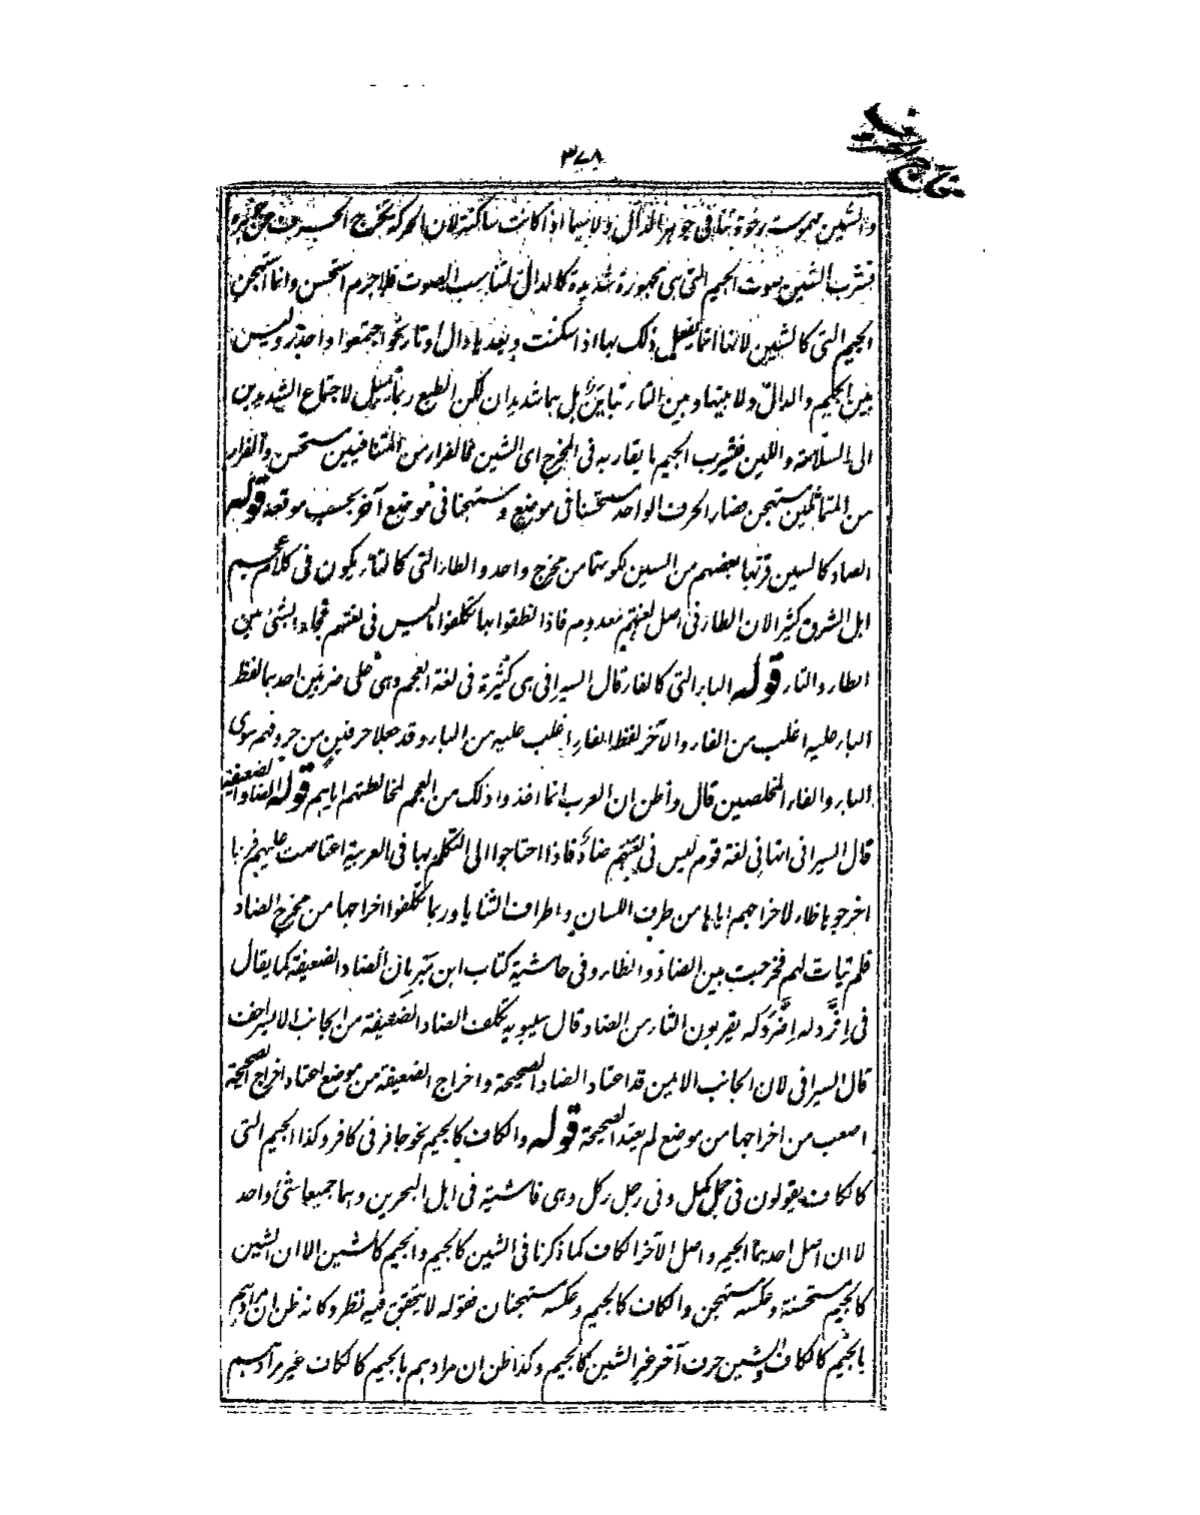 ٣٧٨
والشين مهموسة رخوة تنافي جوهر الدال ولا سيما اذا كانت ساكنة لان الحركة تخرج الحرف عن جوهره
فتشرب الشين صوت الجيم التي هي مجهورة شديدة كالدال لتناسب الصوت فلا جرم استحسن وانما استهجن
الجيم التي كالشين لانها انما يفعل ذلك بها اذا سكنت وبعدها دال او تاء نحو اجتمعوا واجدر وليس
بين الجيم والدال ولا بينها وبين التاء تباين بل هما شديدان لكن الطبع ربما يميل لاجتماع الشديدين
الى السلاسة واللين فتشرب الجيم ما يقاربه في المخرج اى الشين فالفرار من المتنافيين مستحسن والفرار
من المتماثلين مستهجن فصار الحرف الواحد مستحسنا في موضع ومستهجنا في موضع آخر بحسب موقعه قوله
الصاد كالسين قربها بعضهم من السين لكونهما من مخرج واحد والطاء التي كالتاء يكون في كلام عجم
اهل الشرق كثيرا لان الطاء في اصل لغتهم معدوم فاذا نطقوا بها تكلفوا ما ليس في لغتهم فجاء الشئ بين
الطاء والتاء قوله الباء التي كالفاء قال السيرافي هى كثيرة في لغة العجم وهى على ضربين احدهما لفظ
الباء عليه اغلب من الفاء والآخر لفظ الفاء اغلب عليه من الباء وقد جعلا حرفين من حروفهم سوى
الباء والفاء المخلصين قال وأظن ان العرب انما اخذوا ذلك من العجم لمخالطتهم اياهم قوله الضاد الضعيفة
قال السيرافي انها في لغة قوم ليس في لغتهم ضاد فاذا احتاجوا الى التكلم بها في العربية اعتاصت عليهم فربما
اخرجوها ظاء لاخراجهم اياها من طرف اللسان واطراف الثنايا وربما تكلفوا اخراجها من مخرج الضاد
فلم تيات لهم فخرجت بين الضاد والظاء وفي حاشية كتاب ابن مبرمان الضاد الضعيفة كما يقال
في اثرد له اضرد له يقربون الثاء من الضاد قال سيبويه تكلف الضاد الضعيفة من الجانب الايسر اخف
قال السيرافي لان الجانب الايمن قد اعتاد الضاد الصحيحة واخراج الضعيفة من موضع اعتاد اخراج الصحيحة
اصعب من اخراجها من موضع لم يعتد الصحيحة قوله والكاف كالجيم نحو جافر في كافر وكذا الجيم التي
كالكاف يقولون في جمل كمل وفى رجل ركل وهى فاشية في اهل البحرين وهما جميعا شئ واحد
لا ان اصل احدهما الجيم واصل الآخر الكاف كما ذكرنا في الشين كالجيم والجيم كالشين الا ان الشين
كالجيم مستحسنة وعكسه مستهجن والكاف كالجيم وعكسه مستهجنان فقوله لا يتحقق فيه نظر وكانه ظن ان مرادهم
بالجيم كالشين حرف آخر غير الشين كالجيم وكذا ظن ان مرادهم بالجيم كالكاف غير مرادهم